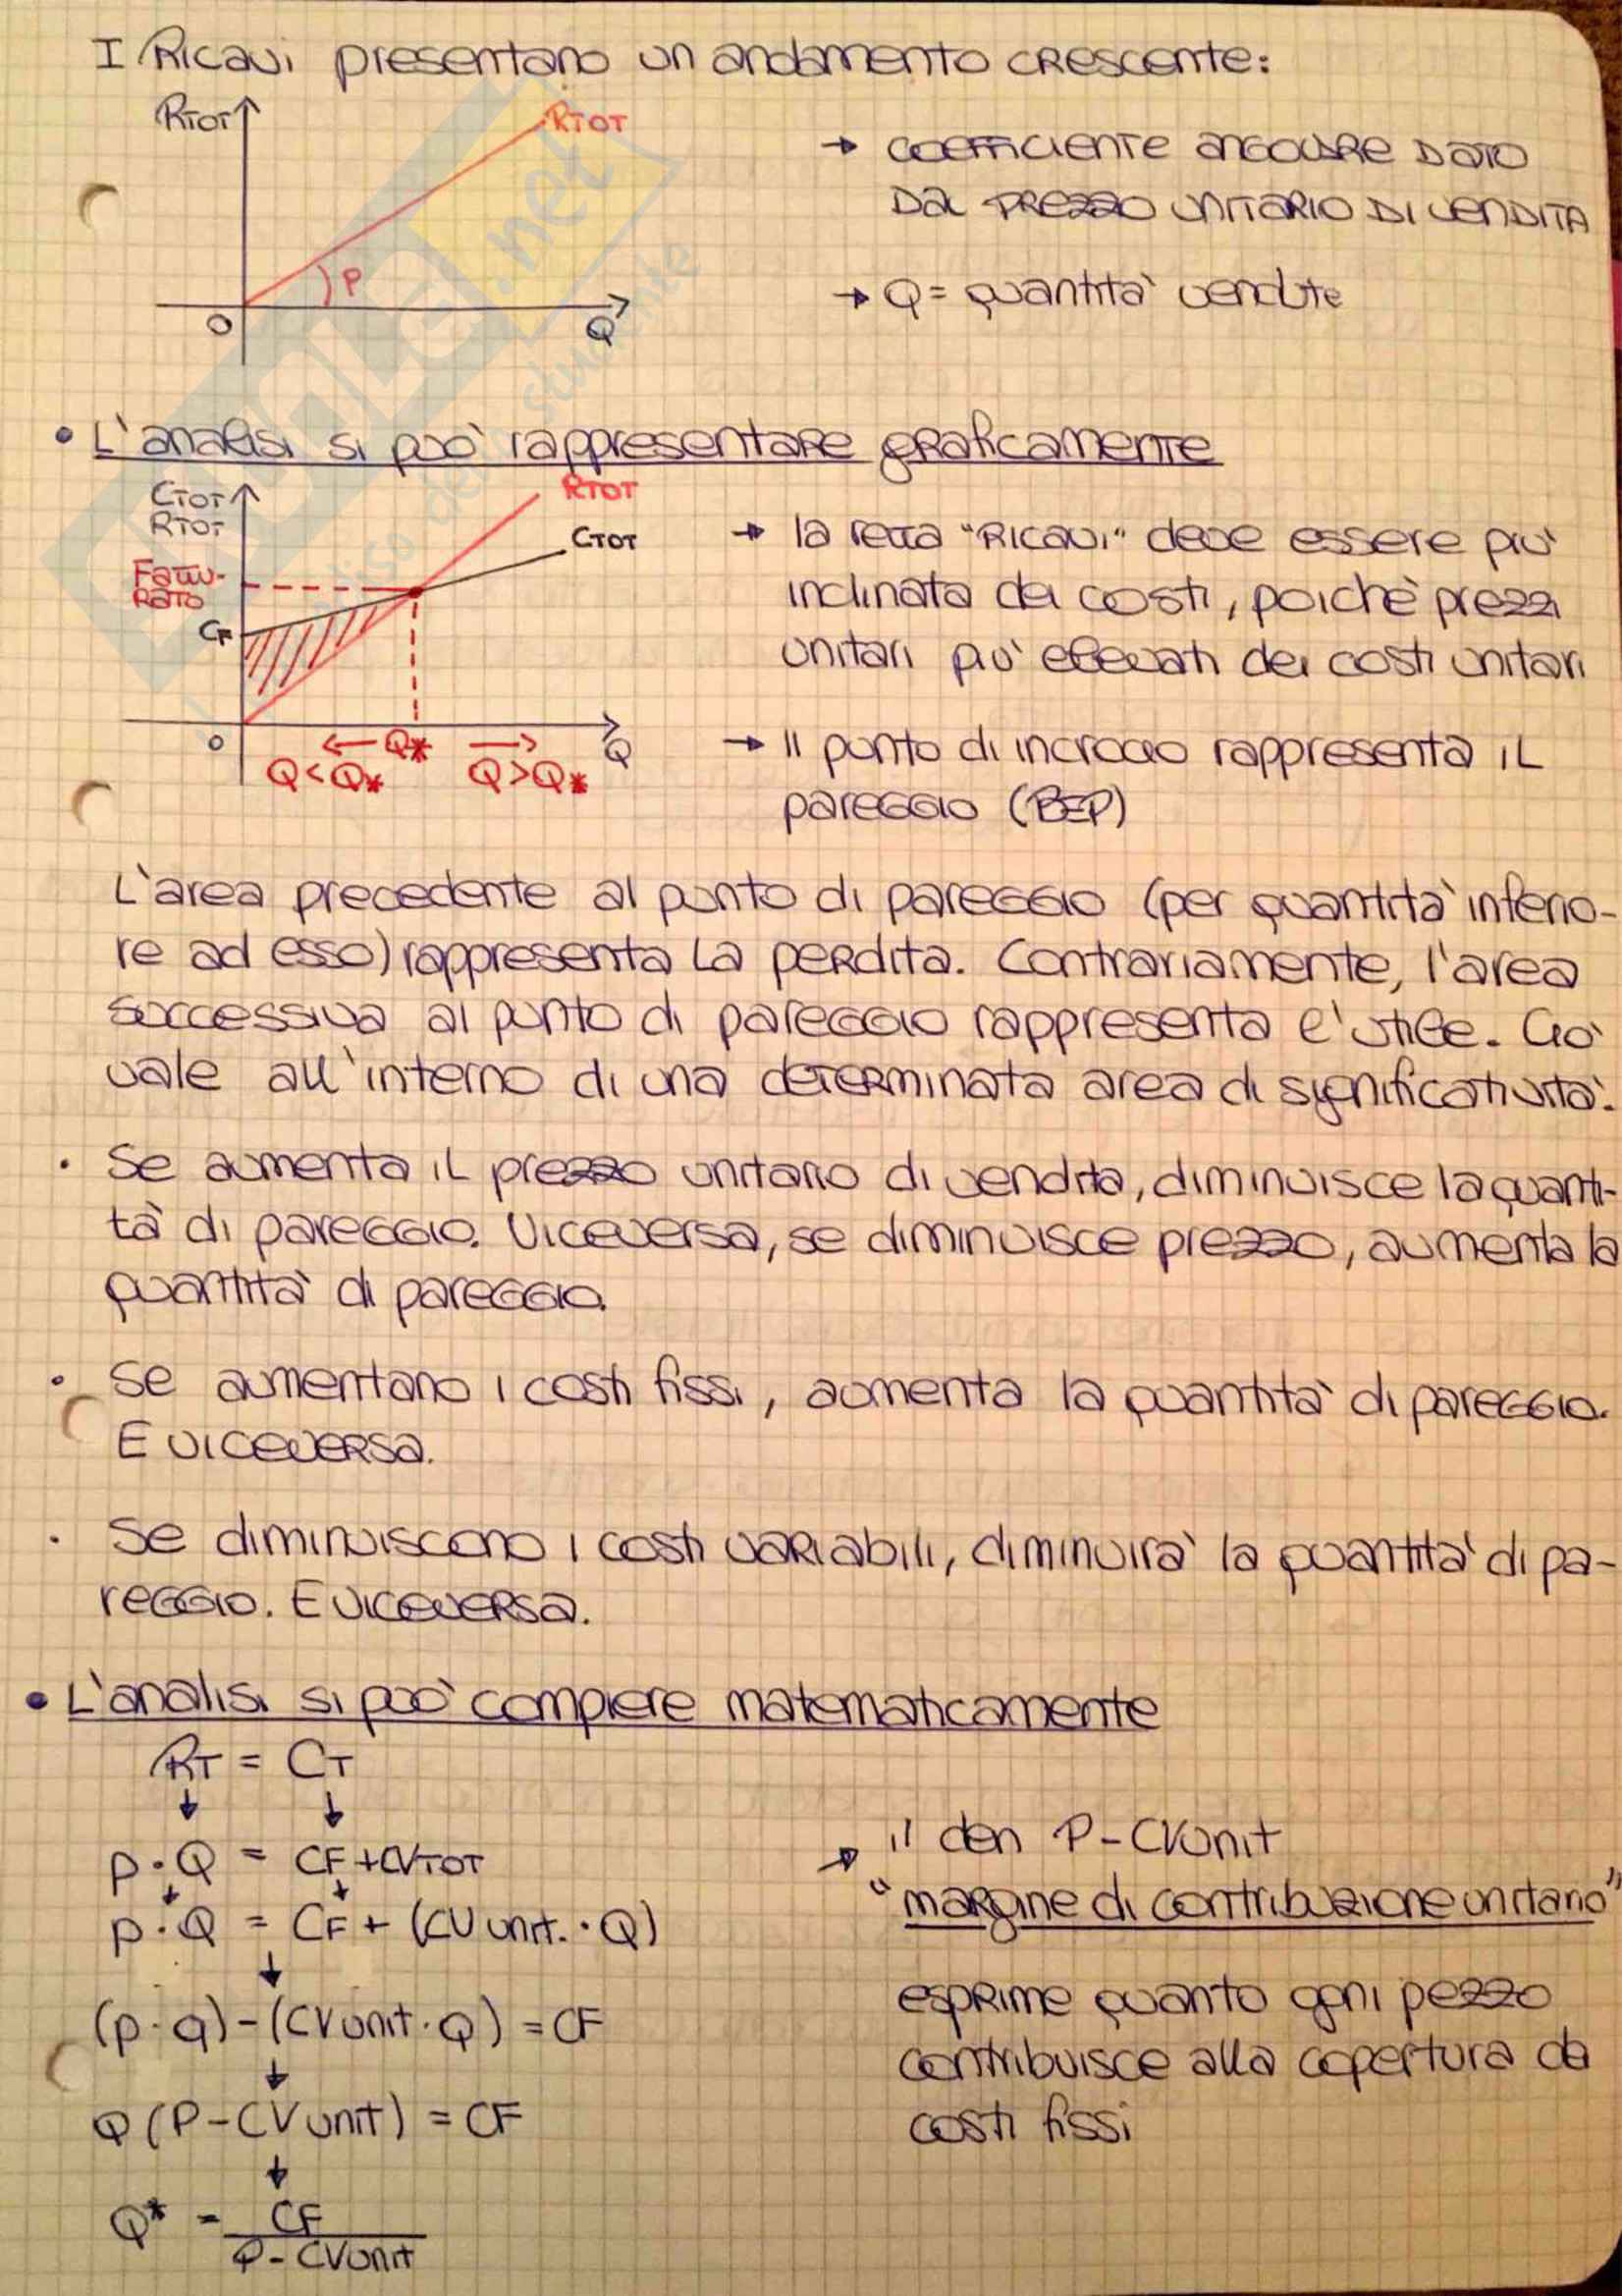 I Ricavi presentano un andamento crescente:
RTOT
RTOT
→ coefficiente angolare dato
dal prezzo unitario di vendita
P
→ Q = quantità vendute
O
Q
• L'analisi si può rappresentare graficamente
CTOT
RTOT
RTOT
CTOT
Fattu-
rato
CF
→ la retta "Ricavi" deve essere più
inclinata dei costi, poichè prezzi
unitari più elevati dei costi unitari
O
← Q* →
Q
Q<Q* Q>Q*
→ Il punto di incrocio rappresenta il
pareggio (BEP)
L'area precedente al punto di pareggio (per quantità inferio-
re ad esso) rappresenta la perdita. Contrariamente, l'area
successiva al punto di pareggio rappresenta l'utile. Ciò
vale all'interno di una determinata area di significatività.
• Se aumenta il prezzo unitario di vendita, diminuisce la quanti-
tà di pareggio. Viceversa, se diminuisce prezzo, aumenta la
quantità di pareggio.
• Se aumentano i costi fissi, aumenta la quantità di pareggio.
E viceversa.
• Se diminuiscono i costi variabili, diminuirà la quantità di pa-
reggio. E viceversa.
• L'analisi si può compiere matematicamente
RT = CT
↓ ↓
p·Q = CF+CVTOT
↓ ↓
p·Q = CF + (CV unit.·Q)
↓
(p·q)-(CVunit·Q) = CF
↓
Q (P-CVunit) = CF
↓
Q* = CF
P-CVunit
→ il den P-CVunit
"margine di contribuzione unitario"
esprime quanto ogni pezzo
contribuisce alla copertura dei
costi fissi
.net